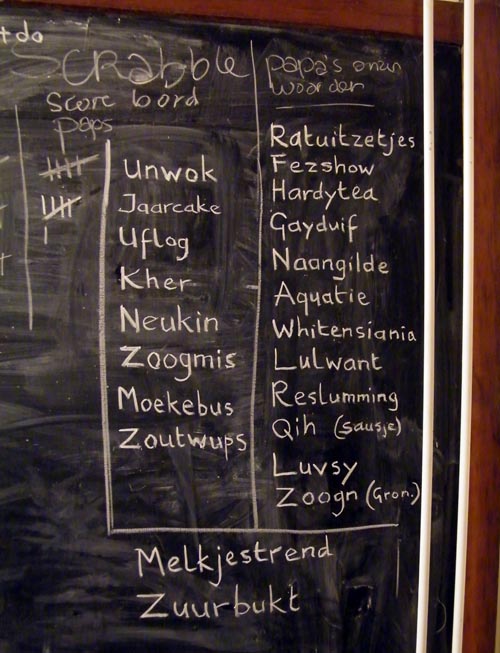 t do
Scrabble
Score bord
paps
Unwok
Jaarcake
Uflog
Kher
Neukin
Zoogmis
Moekebus
Zoutwups
papa's onzin
woorden
Ratuitzetjes
Fezshow
Hardytea
Gayduif
Naangilde
Aquatie
Whitensiania
Lulwant
Reslumming
Qih (sausje)
Luvsy
Zoogn (Gron.)
Melkjestrend
Zuurbukt